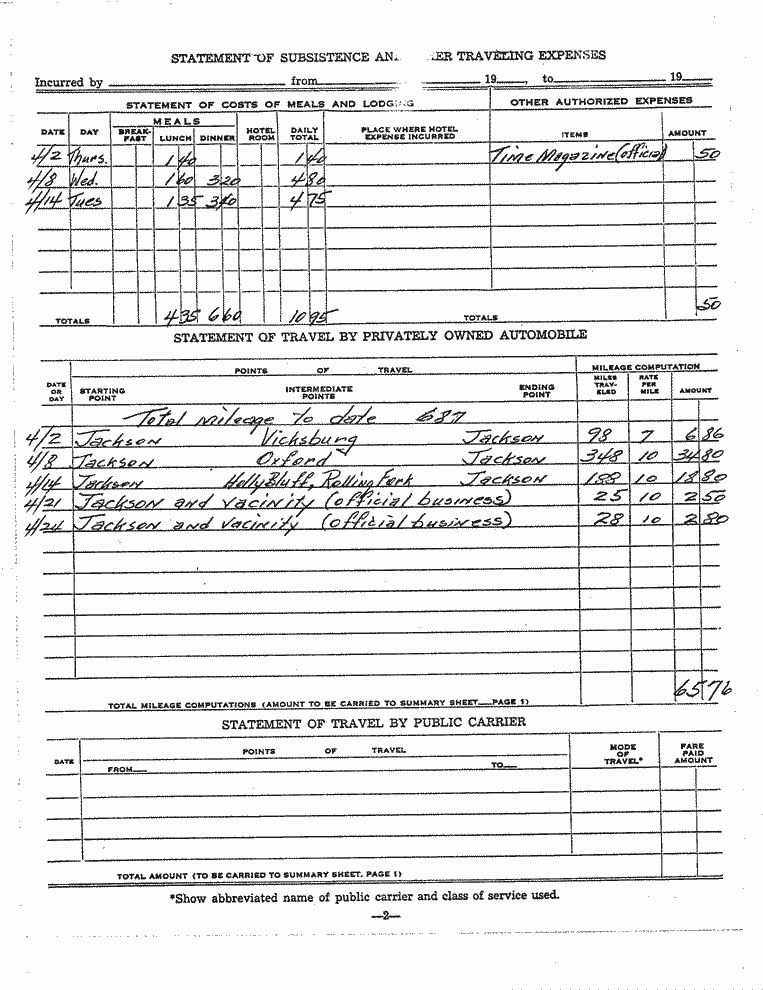 STATEMENT OF SUBSISTENCE AN ER TRAVELING EXPENSES
Incurred by from 19 , to 19
STATEMENT OF COSTS OF MEALS AND LODGING OTHER AUTHORIZED EXPENSES
MEALS
DATE DAY BREAK-FAST LUNCH DINNER HOTEL ROOM DAILY TOTAL PLACE WHERE HOTEL EXPENSE INCURRED ITEMS AMOUNT
4/2 Thurs. 1 40 1 40 Time Magazine (official) 50
4/8 Wed. 1 60 3 20 4 80
4/14 Tues 1 35 3 40 4 75
TOTALS 4 35 6 60 10 95 TOTALS 50
STATEMENT OF TRAVEL BY PRIVATELY OWNED AUTOMOBILE
POINTS OF TRAVEL MILEAGE COMPUTATION
DATE OR DAY STARTING POINT INTERMEDIATE POINTS ENDING POINT MILES TRAV-ELED RATE PER MILE AMOUNT
Total mileage to date 687
4/2 Jackson Vicksburg Jackson 98 7 6 86
4/8 Jackson Oxford Jackson 348 10 34 80
4/14 Jackson Holly Bluff, Rolling Fork Jackson 188 10 18 80
4/21 Jackson and vacinity (official business) 25 10 2 50
4/24 Jackson and vacinity (official business) 28 10 2 80
TOTAL MILEAGE COMPUTATIONS (AMOUNT TO BE CARRIED TO SUMMARY SHEET—PAGE 1) 65 76
STATEMENT OF TRAVEL BY PUBLIC CARRIER
DATE POINTS OF TRAVEL MODE OF TRAVEL* FARE PAID AMOUNT
FROM— TO—
TOTAL AMOUNT (TO BE CARRIED TO SUMMARY SHEET. PAGE 1)
*Show abbreviated name of public carrier and class of service used.
—2—